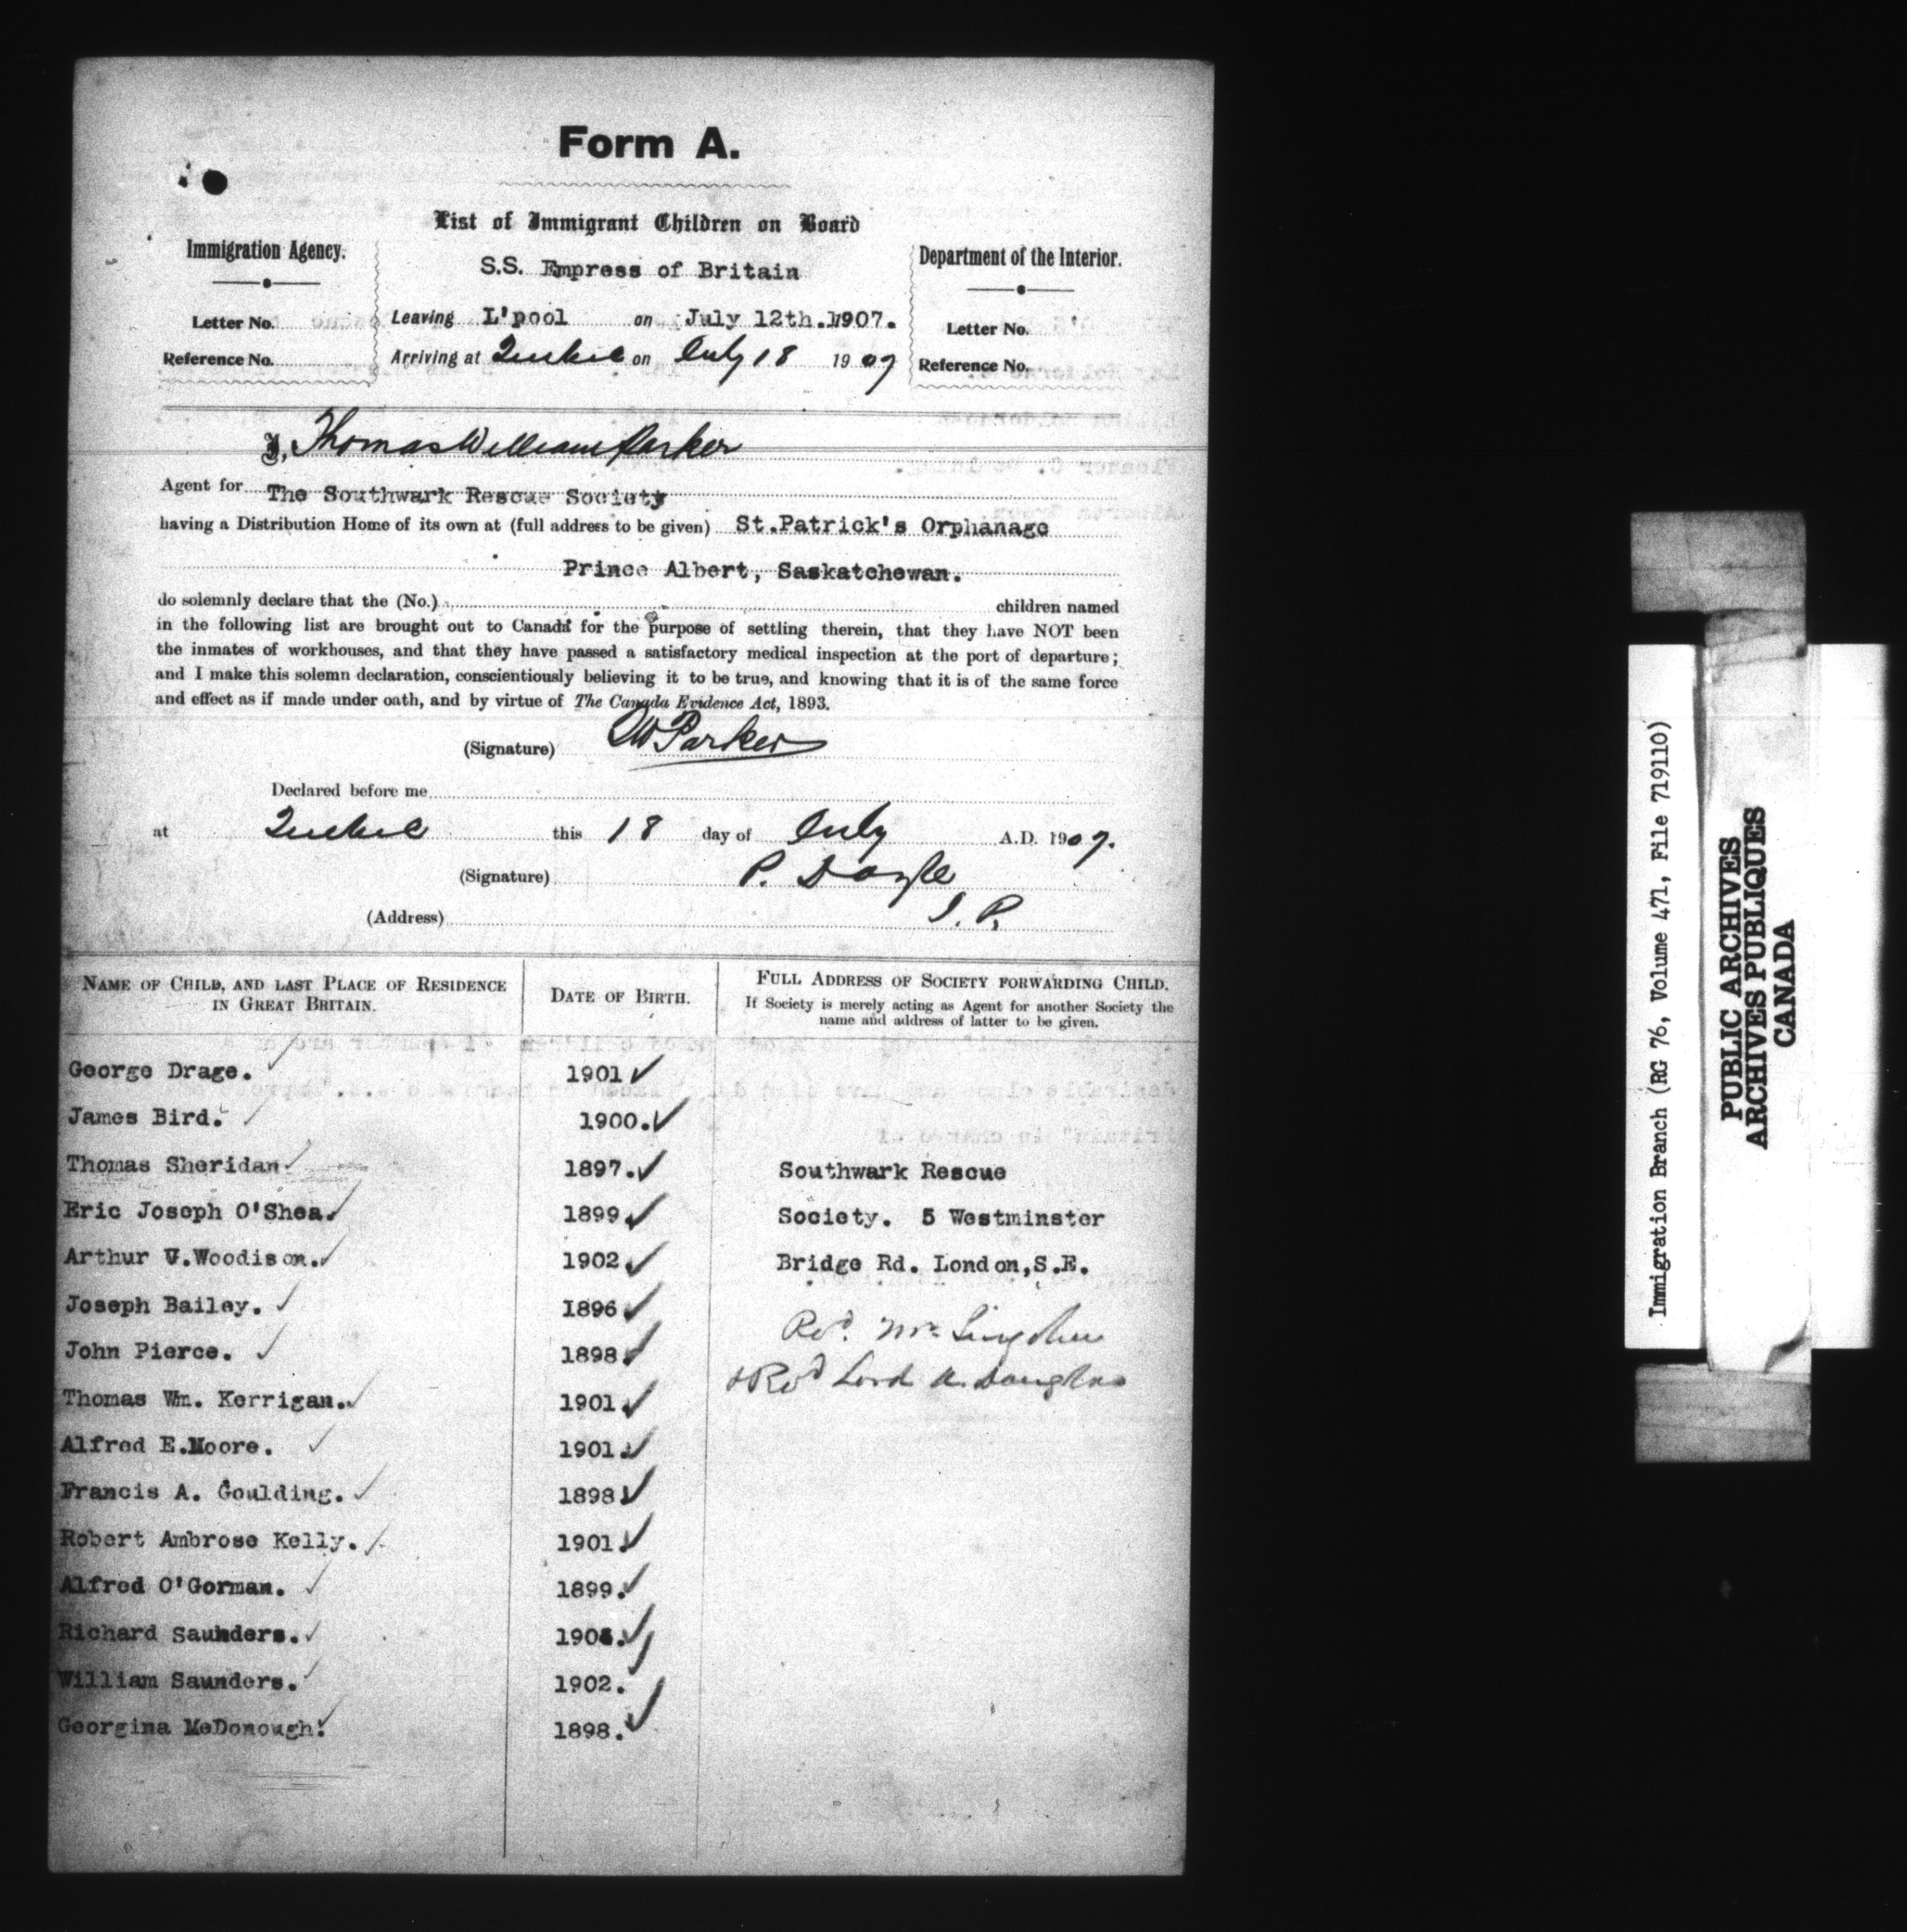 Form A.
List of Immigrant Children on Board
Immigration Agency.
S.S. Empress of Britain
Department of the Interior.
Leaving L'pool on July 12th. 1907.
Letter No.
Letter No.
Arriving at Quebec on July 18 1907
Reference No.
Reference No.
I, Thomas William Parker
Agent for The Southwark Rescue Society
having a Distribution Home of its own at (full address to be given) St.Patrick's Orphanage
Prince Albert, Saskatchewan.
do solemnly declare that the (No.) children named
in the following list are brought out to Canada for the purpose of settling therein, that they have NOT been
the inmates of workhouses, and that they have passed a satisfactory medical inspection at the port of departure;
and I make this solemn declaration, conscientiously believing it to be true, and knowing that it is of the same force
and effect as if made under oath, and by virtue of The Canada Evidence Act, 1893.
(Signature) TWParker
Declared before me
at Quebec this 18 day of July A.D. 1907.
(Signature) P. Doyle
J.P.
(Address)
NAME OF CHILD, AND LAST PLACE OF RESIDENCE
IN GREAT BRITAIN.
DATE OF BIRTH.
FULL ADDRESS OF SOCIETY FORWARDING CHILD.
If Society is merely acting as Agent for another Society the
name and address of latter to be given.
George Drage. 1901
James Bird. 1900.
Thomas Sheridan 1897. Southwark Rescue
Eric Joseph O'Shea. 1899. Society. 5 Westminster
Arthur V.Woodison. 1902. Bridge Rd. London,S.E.
Joseph Bailey. 1896
Revd. Mr.
John Pierce. 1898.
& Revd Lord A. Douglas
Thomas Wm. Kerrigan. 1901.
Alfred E.Moore. 1901.
Francis A. Goulding. 1898.
Robert Ambrose Kelly. 1901.
Alfred O'Gorman. 1899.
Richard Saunders.
William Saunders. 1902.
Georgina McDonough. 1898.
Immigration Branch (RG 76, Volume 471, File 719110)
PUBLIC ARCHIVES
ARCHIVES PUBLIQUES
CANADA